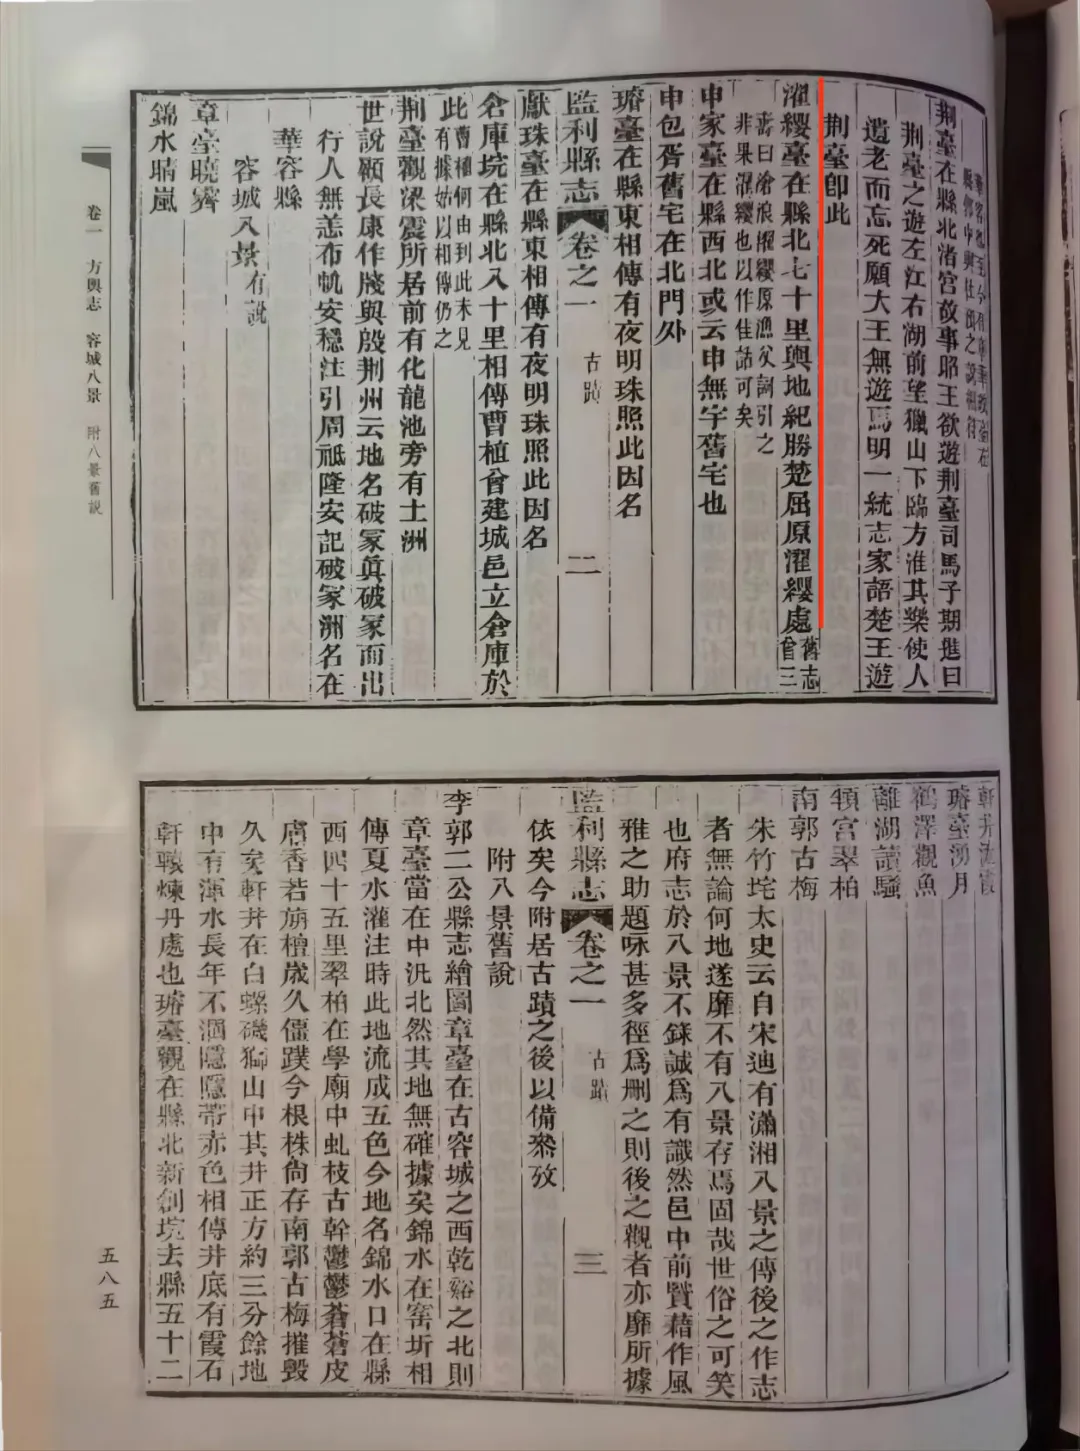 荆臺在縣北渚宫故事昭王欲遊荆臺司馬子期進曰
荆臺之遊左江右湖前望獵山下臨方淮其樂使人
遺老而忘死願大王無遊焉明一統志家語楚王遊
荆臺卽此
濯纓臺在縣北七十里輿地紀勝楚屈原濯纓處舊志
曾三
蒿曰滄浪濯纓原漁父詞引之
非果濯纓也以作佳話可矣
申家臺在縣西北或云申無宇舊宅也
申包胥舊宅在北門外
瑃臺在縣東相傳有夜明珠照此因名
監利縣志
卷之一
古蹟
二
獻珠臺在縣東相傳有夜明珠照此因名
倉庫垸在縣北八十里相傳曹植曾建城邑立倉庫於
此曹植何由到此未見
有據姑以相傳仍之
荆臺觀梁震所居前有化龍池旁有土洲
世說顧長康作牋與殷荆州云地名破冢眞破冢而出
行人無恙布帆安穩注引周祗隆安記破冢洲名在
華容縣
容城八景有說
章臺曉霽
錦水晴嵐
卷一 方輿志 容城八景 附八景舊説
瑃臺湧月
鶴澤觀魚
離湖讀騷
頖宫翠柏
南郭古梅
朱竹垞太史云自宋迪有瀟湘八景之傳後之作志
者無論何地遂靡不有八景存焉固哉世俗之可笑
也府志於八景不錄誠爲有識然邑中前賢藉作風
雅之助題咏甚多徑爲刪之則後之觀者亦靡所據
監利縣志
卷之一
古蹟
三
依矣今附居古蹟之後以備叅攷
附八景舊說
李郭二公縣志繪圖章臺在古容城之西乾谿之北則
章臺當在中汎北然其地無確據矣錦水在窑圻相
傳夏水灌注時此地流成五色今地名錦水口在縣
西四十五里翠柏在學廟中虬枝古幹鬱鬱蒼蒼皮
膚香若旃檀歲久僵蹼今根株尙存南郭古梅摧毁
久矣軒井在白螺磯獅山中其井正方約三分餘地
中有渾水長年不涸隱隱帶赤色相傳井底有霞石
軒轅煉丹處也瑃臺觀在縣北新創垸去縣五十二
五八五